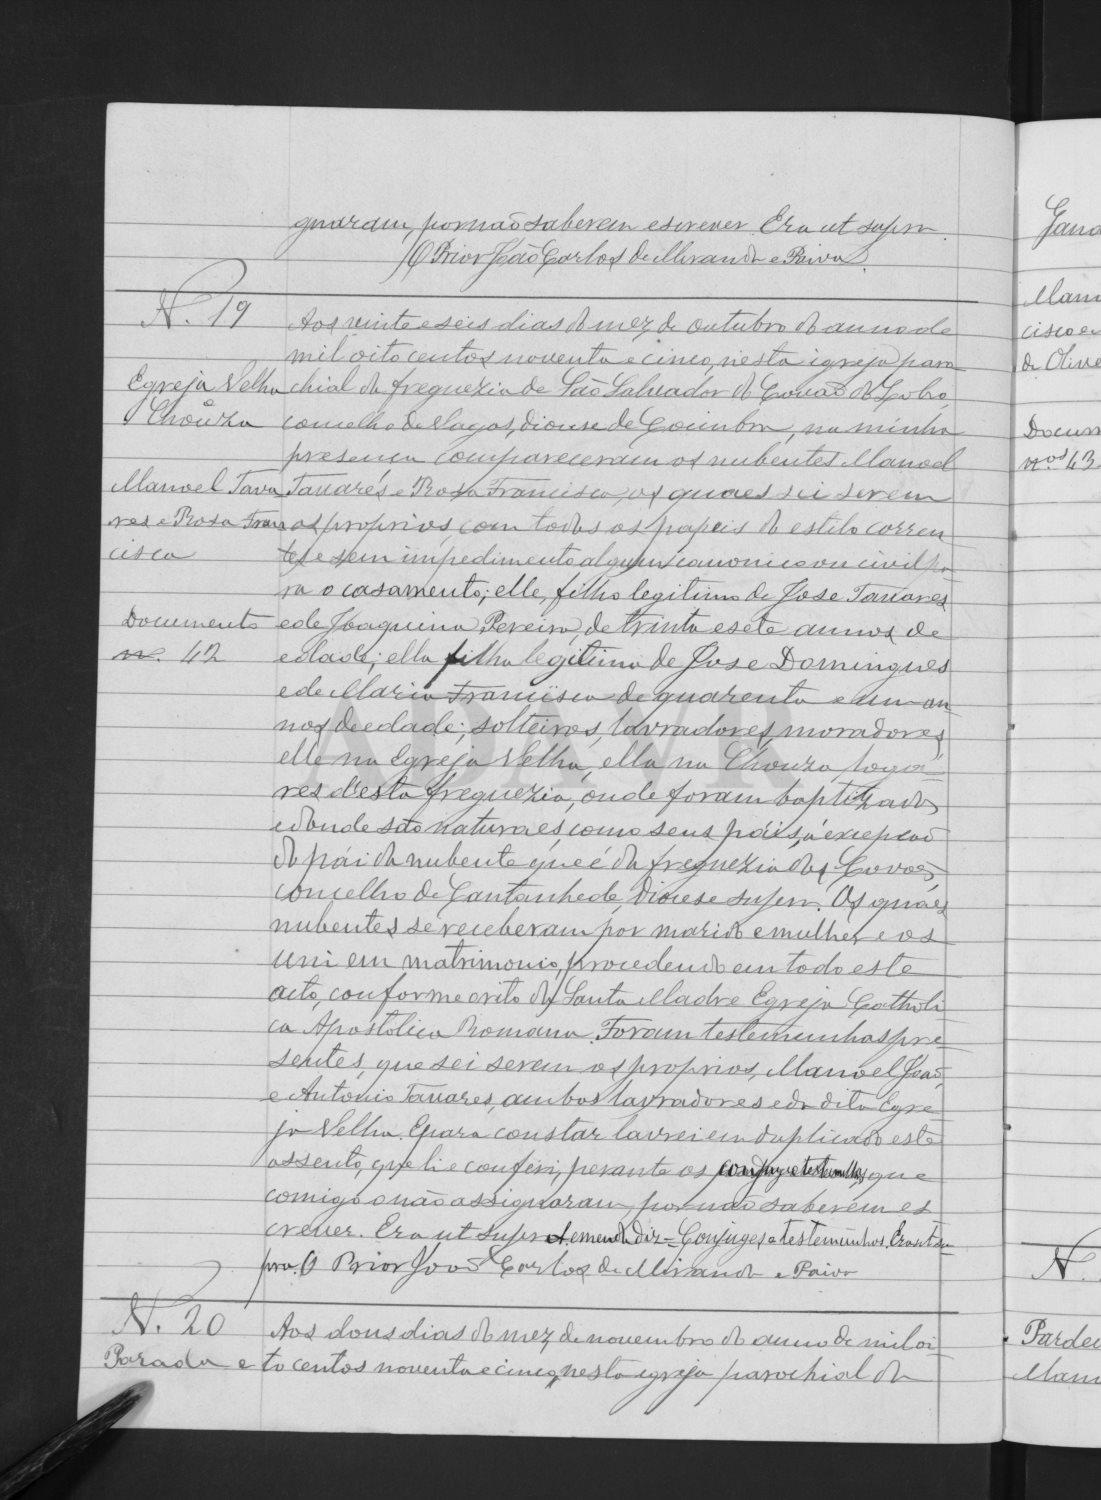 gnaram, por não saberem escrever. Era ut supra.
O Prior João Carlos de Miranda e Paiva.
N. 19
Egreja Velha
e
Chouza
Manoel Tava
res e Rosa Fran
cisca
Documento
n. 42
Aos vinte e seis dias do mez de outubro do anno de
mil oitocentos noventa e cinco, nesta igreja paro
chial da freguezia de São Salvador do Covão do Lobo,
concelho de Vagos, diocese de Coimbra, na minha
presença compareceram os nubentes Manoel
Tavares e Rosa Francisca, os quaes sei serem
os proprios, com todos os papeis do estilo corren
tes e sem impedimento algum canonico ou civil pa
ra o casamento; elle, filho legitimo de Jose Tavares
e de Joaquina Pereira, de trinta e sete annos de
edade; ella filha legitima de Jose Domingues
e de Maria Francisca de quarenta e um an
nos de edade; solteiros, lavradores, moradores,
elle na Egreja Velha, ella na Chouza, loga-
res d'esta freguezia, onde foram baptizados
e donde são naturaes como seus páis, á excepção
do pái da nubente que é da freguezia dos Covões,
concelho de Cantanhede, diocese supra. Os quaes
nubentes se receberam por marido e mulher e os
uni em matrimonio, procedendo em todo este
acto, conforme o rito da Santa Madre Egreja Catholi
ca Apostolica Romana. Foram testemunhas pre-
sentes, que sei serem os proprios, Manoel João,
e Antonio Tavares, ambos lavradores e da dita Egre
ja Velha. E para constar lavrei em duplicado este
assento, que li e conferi, perante os conjuges e testemunhas, que
comigo o não assignaram por não saberem es
crever. Era ut supra. A emenda diz = Conjuges e testemunhas. Era ut su
pra. O Prior João Carlos de Miranda e Paiva
N. 20
Parada e
Aos dous dias do mez de novembro do anno de mil oi-
to centos noventa e cinco, nesta igreja parochial da
ADAVR
Manu
cisco e
de Olive
Docum
n.os 43
N.
Parde
Manu